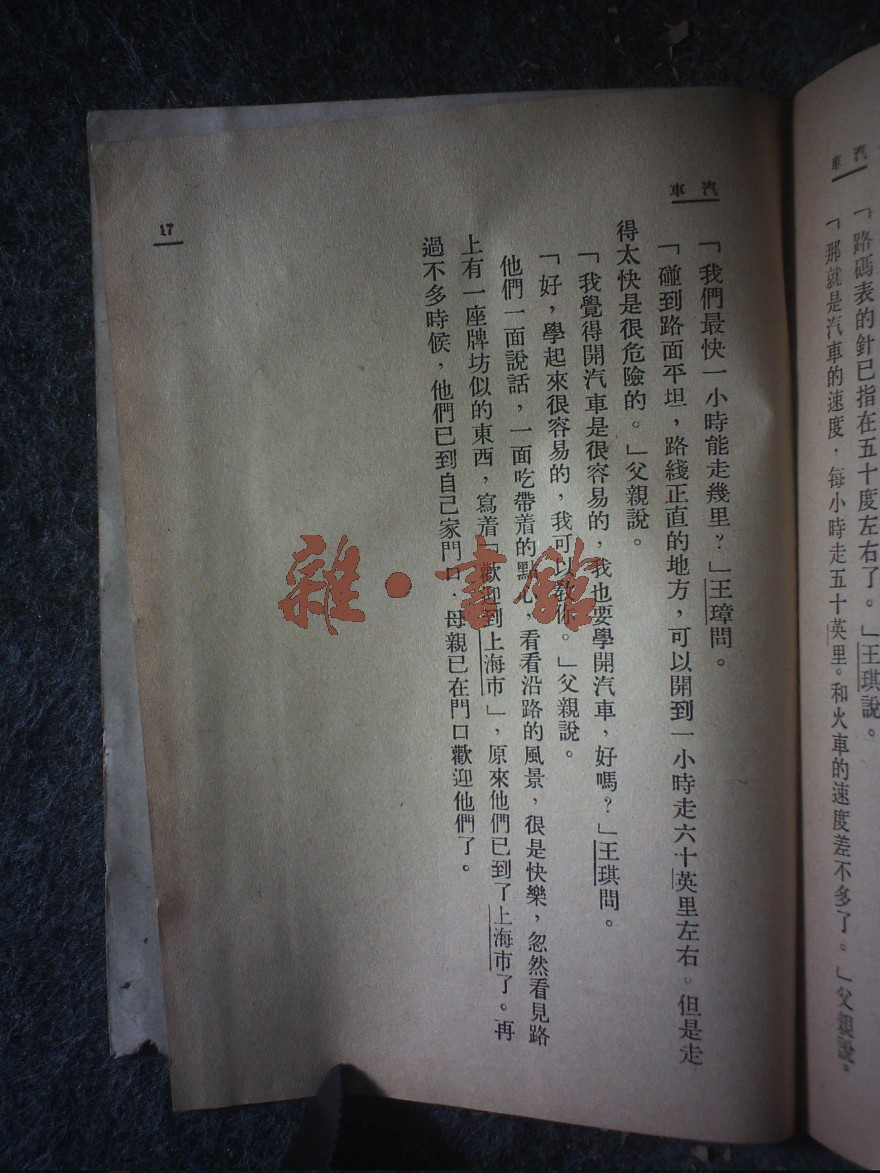 汽車
「路碼表的針已指在五十度左右了。」王琪說。
「那就是汽車的速度，每小時走五十英里。和火車的速度差不多了。」父親說。
汽車
「我們最快一小時能走幾里？」王璋問。
「碰到路面平坦，路綫正直的地方，可以開到一小時走六十英里左右。但是走
得太快是很危險的。」父親說。
「我覺得開汽車是很容易的，我也要學開汽車，好嗎？」王琪問。
「好，學起來很容易的，我可以教你。」父親說。
他們一面說話，一面吃帶着的點心，看看沿路的風景，很是快樂，忽然看見路
上有一座牌坊似的東西，寫着「歡迎到上海市」，原來他們已到了上海市了。再
過不多時候，他們已到自己家門口．母親已在門口歡迎他們了。
17
雜·書館